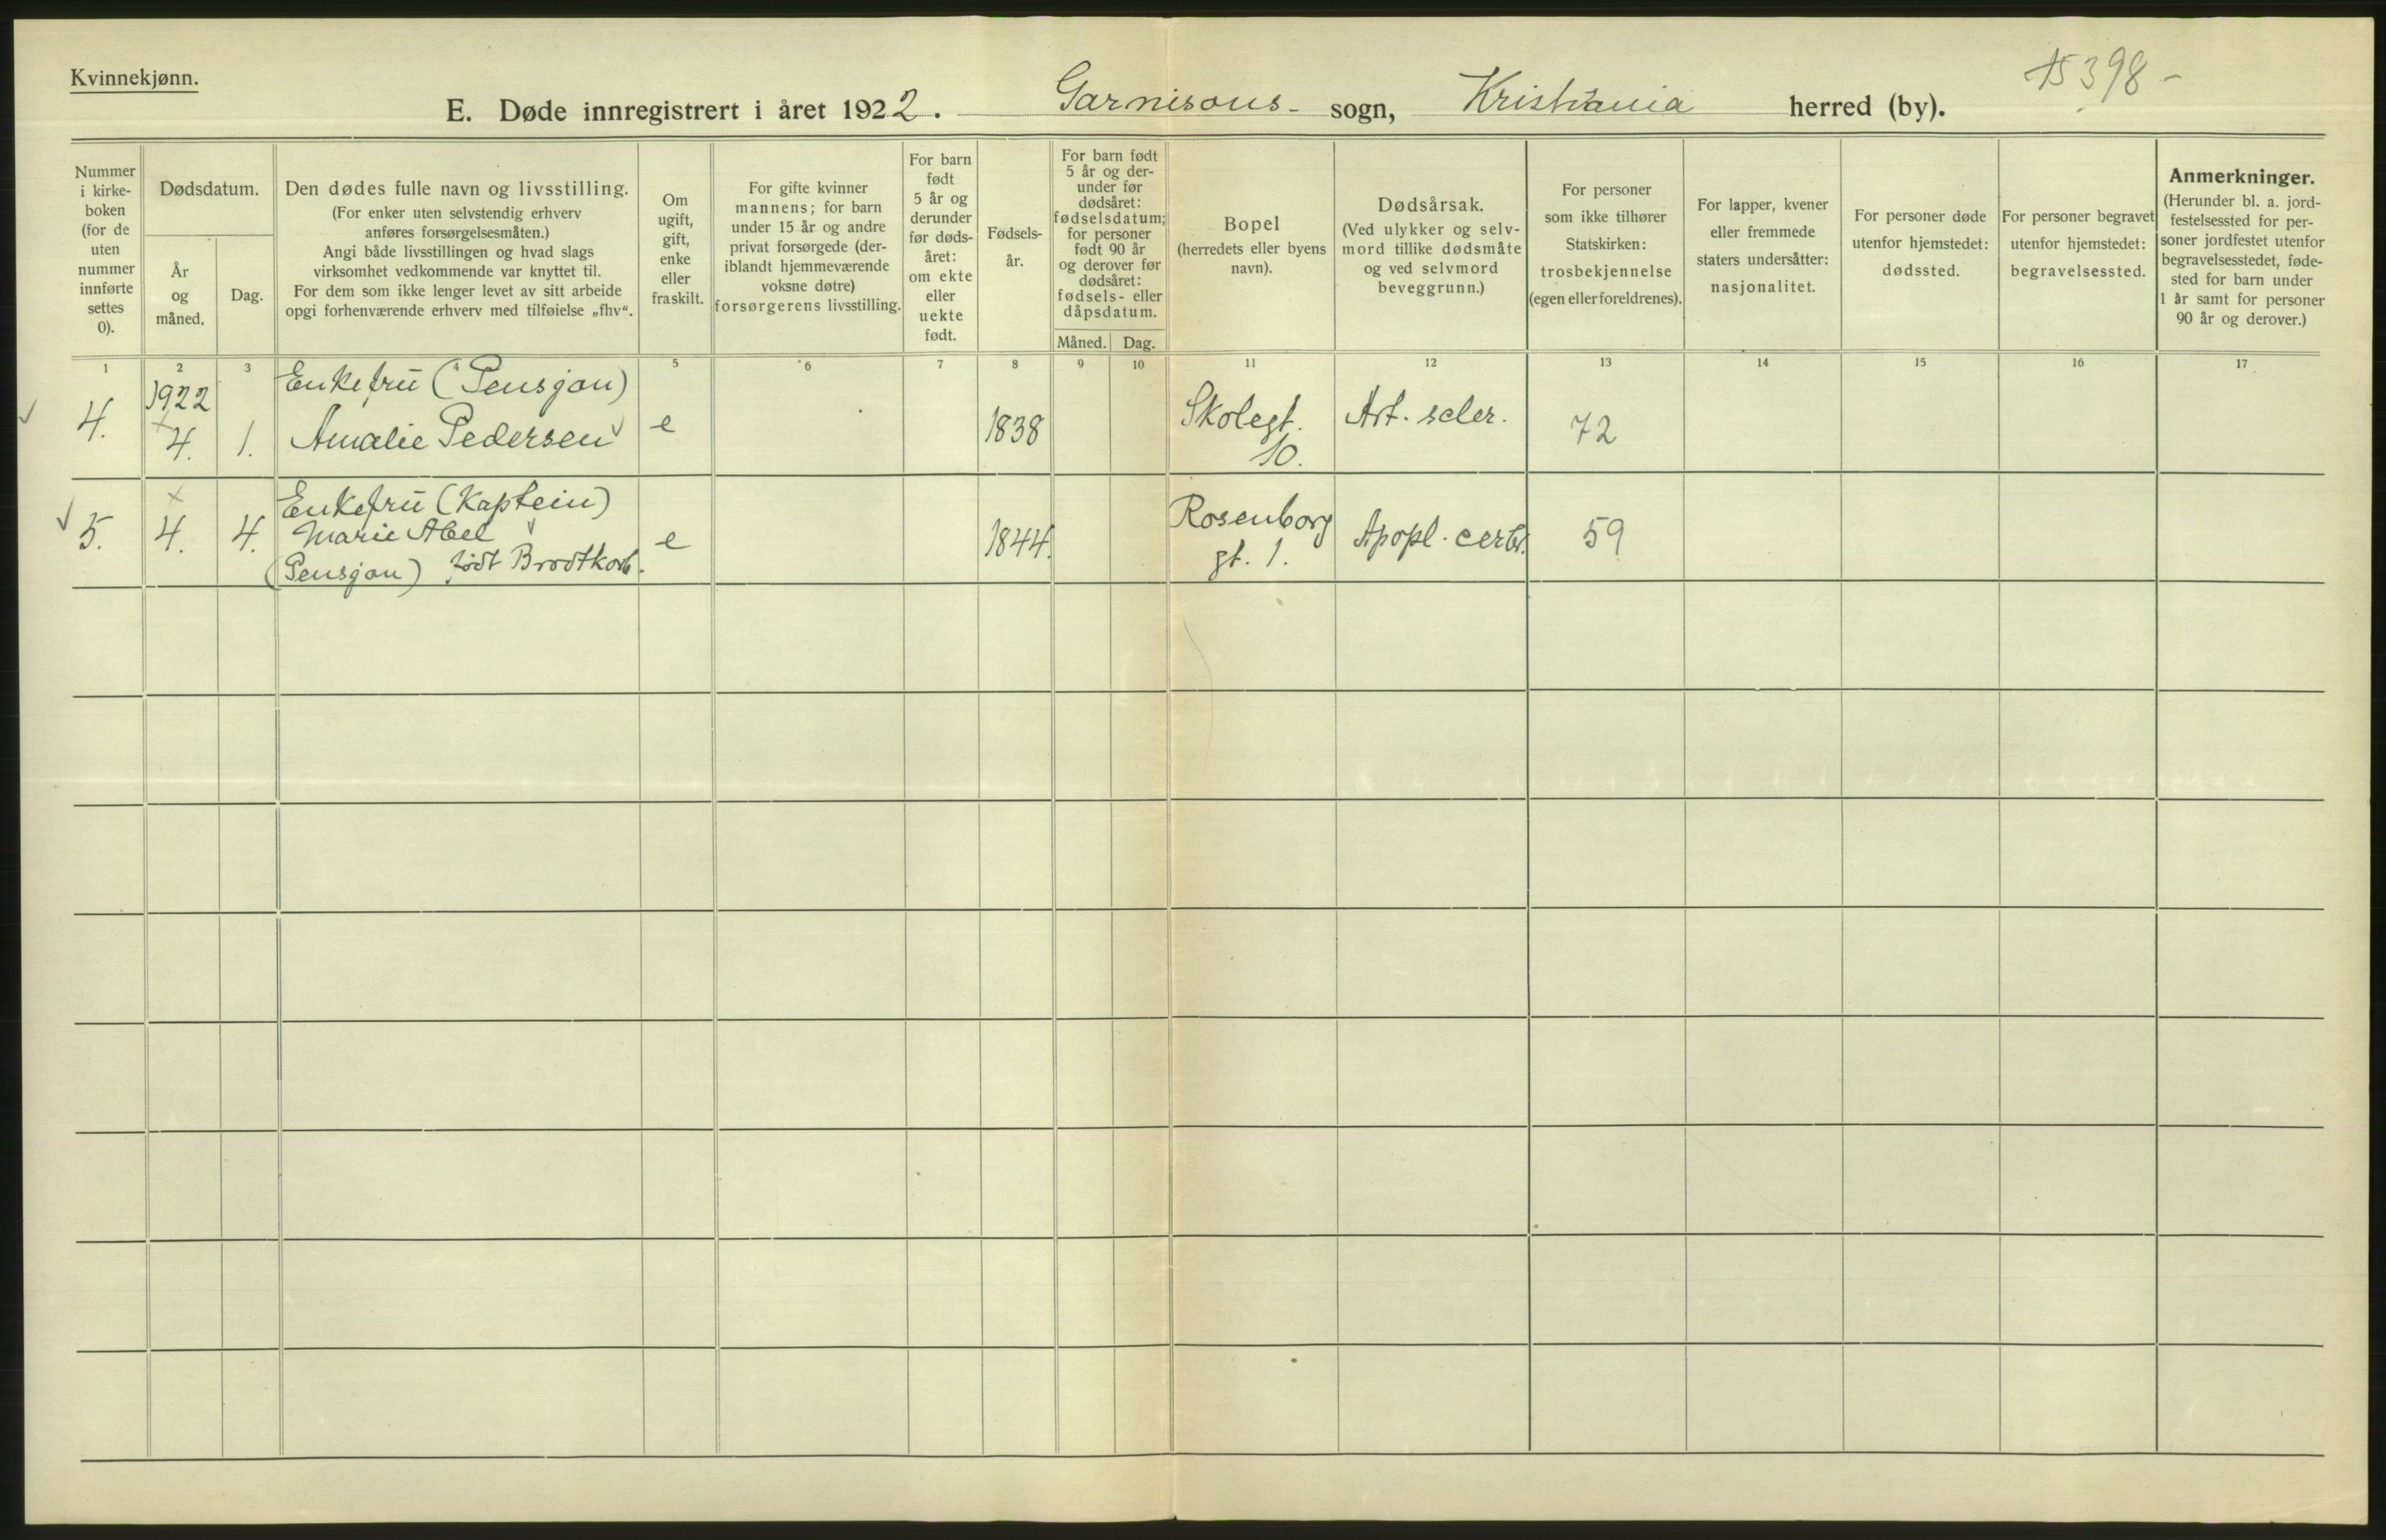 Kvinnekjønn.
15398-
E. Døde innregistrert i året 1922. Garnisons- sogn, Kristiania herred (by).
Nummer
i kirke-
boken
(for de
uten
nummer
innførte
settes
0).
Dødsdatum.
År
og
måned.
Dag.
Den dødes fulle navn og livsstilling.
(For enker uten selvstendig erhverv
anføres forsørgelsesmåten.)
Angi både livsstillingen og hvad slags
virksomhet vedkommende var knyttet til.
For dem som ikke lenger levet av sitt arbeide
opgi forhenværende erhverv med tilføielse „fhv“.
Om
ugift,
gift,
enke
eller
fraskilt.
For gifte kvinner
mannens; for barn
under 15 år og andre
privat forsørgede (der-
iblandt hjemmeværende
voksne døtre)
forsørgerens livsstilling.
For barn
født
5 år og
derunder
før døds-
året:
om ekte
eller
uekte
født.
Fødsels-
år.
For barn født
5 år og der-
under før
dødsåret:
fødselsdatum;
for personer
født 90 år
og derover før
dødsåret:
fødsels- eller
dåpsdatum.
Måned. Dag.
Bopel
(herredets eller byens
navn).
Dødsårsak.
(Ved ulykker og selv-
mord tillike dødsmåte
og ved selvmord
beveggrunn.)
For personer
som ikke tilhører
Statskirken:
trosbekjennelse
(egen eller foreldrenes).
For lapper, kvener
eller fremmede
staters undersåtter:
nasjonalitet.
For personer døde
utenfor hjemstedet:
dødssted.
For personer begravet
utenfor hjemstedet:
begravelsessted.
Anmerkninger.
(Herunder bl. a. jord-
festelsessted for per-
soner jordfestet utenfor
begravelsesstedet, føde-
sted for barn under
1 år samt for personer
90 år og derover.)
1 2 3 4 5 6 7 8 9 10 11 12 13 14 15 16 17
Enkefru (Pensjon)
1922
4. 4. 1. Amalie Pedersen e 1838 Skolegt. Art. scler. 72
10.
Enkefru (Kaptein)
5. 4. 4. Marie Abel e 1844. Rosenborg Apopl. cerbr. 59
(Pensjon) født Brodtkorb. gt. 1.